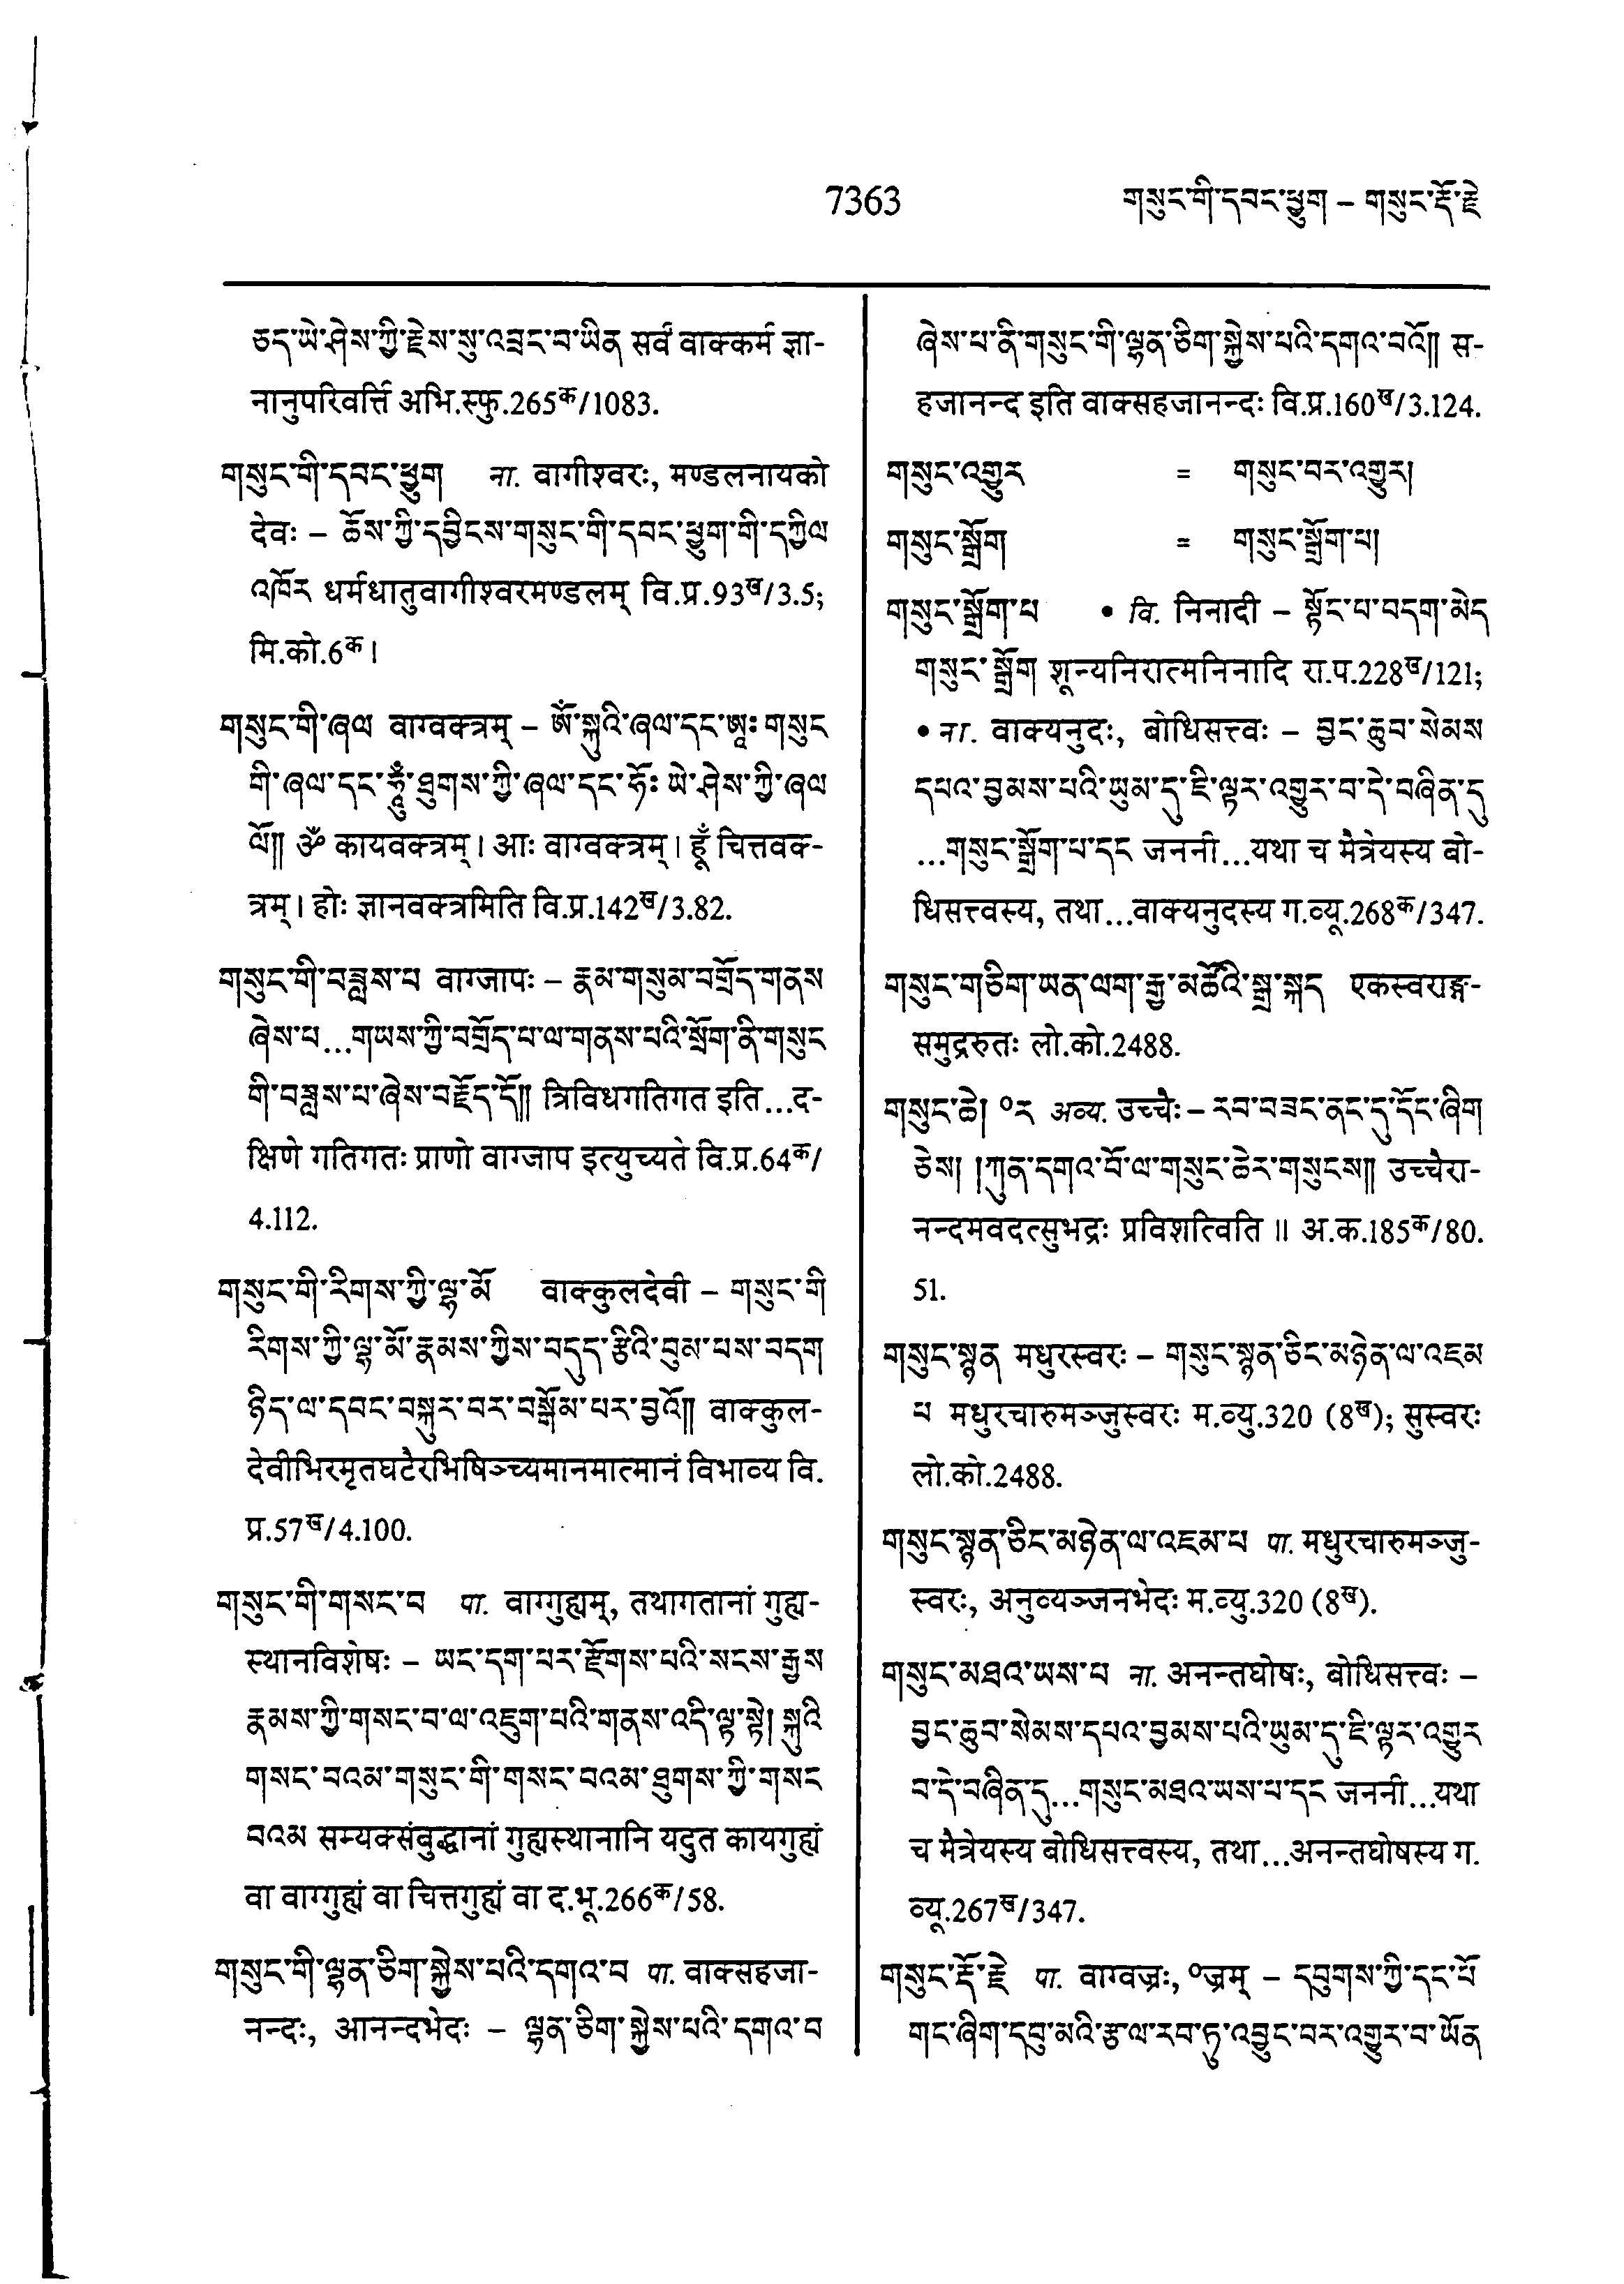 7363
གསུང་གི་དབང་ཕྱུག – གསུང་རྡོ་རྗེ
ཅད་ཡེ་ཤེས་ཀྱི་རྗེས་སུ་འབྲང་བ་ཡིན सर्वं वाक्कर्म ज्ञा-
नानुपरिवर्त्ति अभि.स्फु.265क/1083.
གསུང་གི་དབང་ཕྱུག ना. वागीश्वरः, मण्डलनायको
देवः – ཆོས་ཀྱི་དབྱིངས་གསུང་གི་དབང་ཕྱུག་གི་དཀྱིལ
འཁོར धर्मधातुवागीश्वरमण्डलम् वि.प्र.93ख/3.5;
मि.को.6क।
གསུང་གི་ཞལ वाग्वक्त्रम् – ཨོཾ་སྐུའི་ཞལ་དང་ཨཱཿ གསུང
གི་ཞལ་དང་ཧཱུྃ་ཐུགས་ཀྱི་ཞལ་དང་ཧོཿ ཡེ་ཤེས་ཀྱི་ཞལ
ལོ།། ॐ कायवक्त्रम्। आः वाग्वक्त्रम्। हूँ चित्तवक्-
त्रम्। होः ज्ञानवक्त्रमिति वि.प्र.142ख/3.82.
གསུང་གི་བཟླས་པ वाग्जापः – རྣམ་གསུམ་བགྲོད་གནས
ཞེས་པ...གཡས་ཀྱི་བགྲོད་པ་ལ་གནས་པའི་སྲོག་ནི་གསུང
གི་བཟླས་པ་ཞེས་བརྗོད་དོ།། त्रिविधगतिगत इति...द-
क्षिणे गतिगतः प्राणो वाग्जाप इत्युच्यते वि.प्र.64क/
4.112.
གསུང་གི་རིགས་ཀྱི་ལྷ་མོ वाक्कुलदेवी – གསུང་གི
རིགས་ཀྱི་ལྷ་མོ་རྣམས་ཀྱིས་བདུད་རྩིའི་བུམ་པས་བདག
ཉིད་ལ་དབང་བསྐུར་བར་བསྒོམ་པར་བྱའོ།། वाक्कुल-
देवीभिरमृतघटैरभिषिञ्च्यमानमात्मानं विभाव्य वि.
प्र.57ख/4.100.
གསུང་གི་གསང་བ पा. वाग्गुह्यम्, तथागतानां गुह्य-
स्थानविशेषः – ཡང་དག་པར་རྫོགས་པའི་སངས་རྒྱས
རྣམས་ཀྱི་གསང་བ་ལ་འཇུག་པའི་གནས་འདི་ལྟ་སྟེ། སྐུའི
གསང་བའམ་གསུང་གི་གསང་བའམ་ཐུགས་ཀྱི་གསང
བའམ सम्यक्संबुद्धानां गुह्यस्थानानि यदुत कायगुह्यं
वा वाग्गुह्यं वा चित्तगुह्यं वा द.भू.266क/58.
གསུང་གི་ལྷན་ཅིག་སྐྱེས་པའི་དགའ་བ पा. वाक्सहजा-
नन्दः, आनन्दभेदः – ལྷན་ཅིག་སྐྱེས་པའི་དགའ་བ
ཞེས་པ་ནི་གསུང་གི་ལྷན་ཅིག་སྐྱེས་པའི་དགའ་བའོ།། स-
हजानन्द इति वाक्सहजानन्दः वि.प्र.160ख/3.124.
གསུང་འགྱུར = གསུང་བར་འགྱུར།
གསུང་སྒྲོག = གསུང་སྒྲོག་པ།
གསུང་སྒྲོག་པ • वि. निनादी – སྟོང་པ་བདག་མེད
གསུང་སྒྲོག शून्यनिरात्मनिनादि रा.प.228ख/121;
• ना. वाक्यनुदः, बोधिसत्त्वः – བྱང་ཆུབ་སེམས
དཔའ་བྱམས་པའི་ཡུམ་དུ་ཇི་ལྟར་འགྱུར་བ་དེ་བཞིན་དུ
...གསུང་སྒྲོག་པ་དང जननी...यथा च मैत्रेयस्य बो-
धिसत्त्वस्य, तथा...वाक्यनुदस्य ग.व्यू.268क/347.
གསུང་གཅིག་ཡན་ལག་རྒྱ་མཚོའི་སྒྲ་སྐད एकस्वराङ्ग-
समुद्ररुतः लो.को.2488.
གསུང་ཆེ། ०ར अव्य. उच्चैः – རབ་བཟང་ནང་དུ་དོང་ཞིག
ཅེས། །ཀུན་དགའ་བོ་ལ་གསུང་ཆེར་གསུངས།། उच्चैरा-
नन्दमवदत्सुभद्रः प्रविशत्विति ॥ अ.क.185क/80.
51.
གསུང་སྙན मधुरस्वरः – གསུང་སྙན་ཅིང་མཉེན་ལ་འཇམ
པ मधुरचारुमञ्जुस्वरः म.व्यु.320 (8ख); सुस्वरः
लो.को.2488.
གསུང་སྙན་ཅིང་མཉེན་ལ་འཇམ་པ पा. मधुरचारुमञ्जु-
स्वरः, अनुव्यञ्जनभेदः म.व्यु.320 (8ख).
གསུང་མཐའ་ཡས་པ ना. अनन्तघोषः, बोधिसत्त्वः –
བྱང་ཆུབ་སེམས་དཔའ་བྱམས་པའི་ཡུམ་དུ་ཇི་ལྟར་འགྱུར
བ་དེ་བཞིན་དུ...གསུང་མཐའ་ཡས་པ་དང जननी...यथा
च मैत्रेयस्य बोधिसत्त्वस्य, तथा...अनन्तघोषस्य ग.
व्यू.267ख/347.
གསུང་རྡོ་རྗེ पा. वाग्वज्रः, ०ज्रम् – དབུགས་ཀྱི་དང་པོ
གང་ཞིག་དབུ་མའི་རྩ་ལ་རབ་ཏུ་འབྱུང་བར་འགྱུར་བ་ཡོན